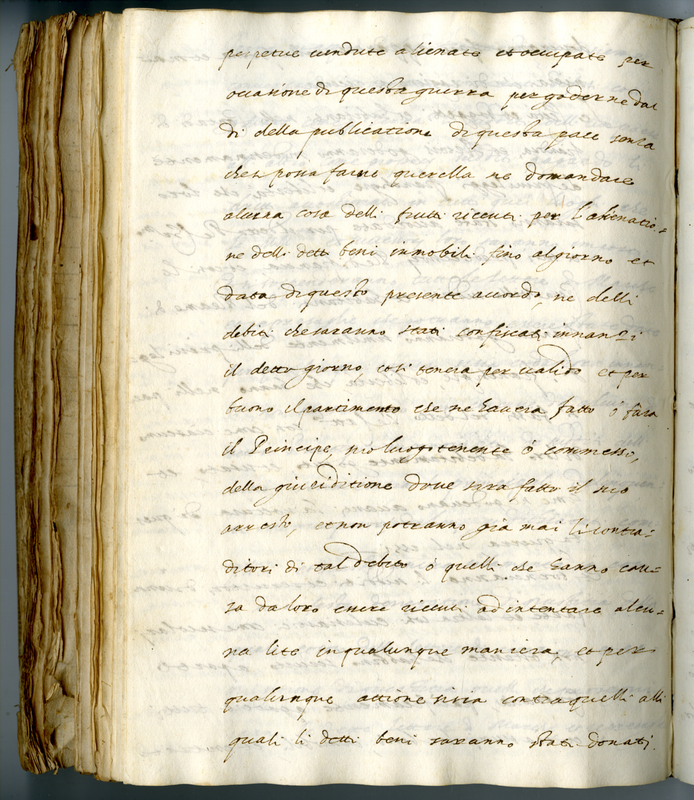 perpetue vendute alienate et occupate per
occasione di questa guerra per goderne dal
di della publicatione di questa pace senza
che si possa farne querella ne domandare
alcuna cosa delli frutti riceuti per l'alienatio-
ne delli detti beni immobili fino al giorno et
data di questo presente accordo, ne delli
debiti che saranno stati confiscati innanzi
il detto giorno, così tenera per valido et per
buono il partimento che ne havera fatto ó fara
il Principe, suo luogotenente ó commesso,
della giuriditione dove sara fatto il suo
arresto, et non potranno gia mai li
ditori di tal debito ó quelli che hanno cau-
sa da loro essere riceuti ad intentare alcu-
na lite in qualunque maniera, et per
qualunque attione sia contra quelli alli
quali li detti beni saranno stati donati